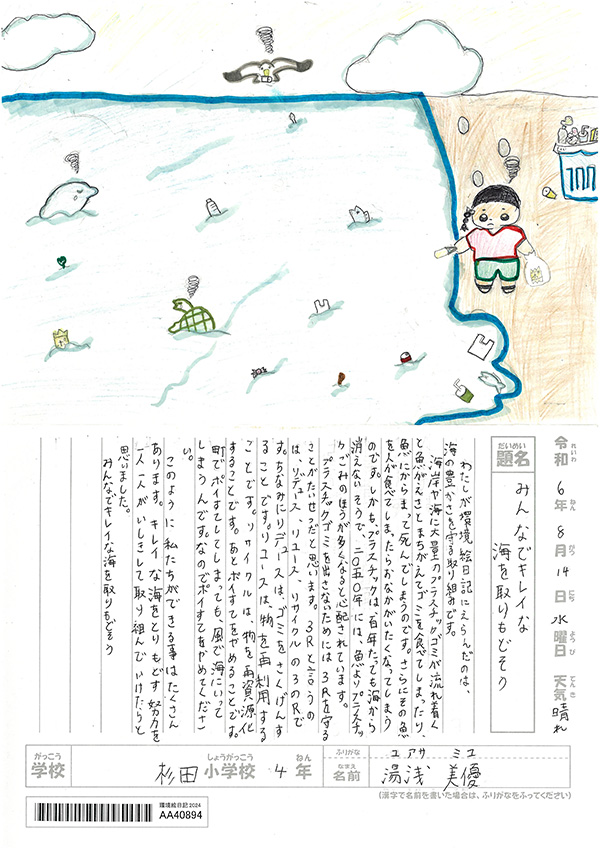 令和6年8月14日水曜日 天気 晴れ
れいわ ねん がつ にち ようび てんき
だいめい
題名
みんなでキレイな
海を取りもどそう
わたしが環境絵日記にえらんだのは、
海の豊かさを守る取り組みです。
海岸や海に大量のプラスチックゴミが流れ着く
と魚がえさとまちがえてゴミを食べてしまったり、
魚にからまって死んでしまうのです。さらにその魚
を人が食べてしまったらおなかがいたくなってしまう
のです。しかも、プラスチックは百年たっても海から
消えないそうで、二〇五〇年には、魚よりプラスチッ
クごみのほうが多くなると心配されています。
プラスチックゴミを出さないためには3Rを守る
ことがたいせつだと思います。3Rと言うの
は、リデュース、リユース、リサイクルの3のRで
す。ちなみにリデュースは、ゴミをさくげんす
ることです。リユースは、物を再利用する
ことです。リサイクルは、物を再資源化
することです。あとポイすてをやめることです。
町でポイすてしてしまっても、風で海にいって
しまうんです。なのでポイすてをやめてくださ
い。
このように私たちができる事はたくさん
あります。キレイな海をとりもどす努力を
一人一人がいしきして取り組んでいけたらと
思いました。
みんなでキレイな海を取りもどそう
がっこう
学校
杉田小学校 4年
しょうがっこう ねん
ふりがな ユアサ ミユ
なまえ
名前 湯浅 美優
(漢字で名前を書いた場合は、ふりがなをふってください)
環境絵日記2024
AA40894
100